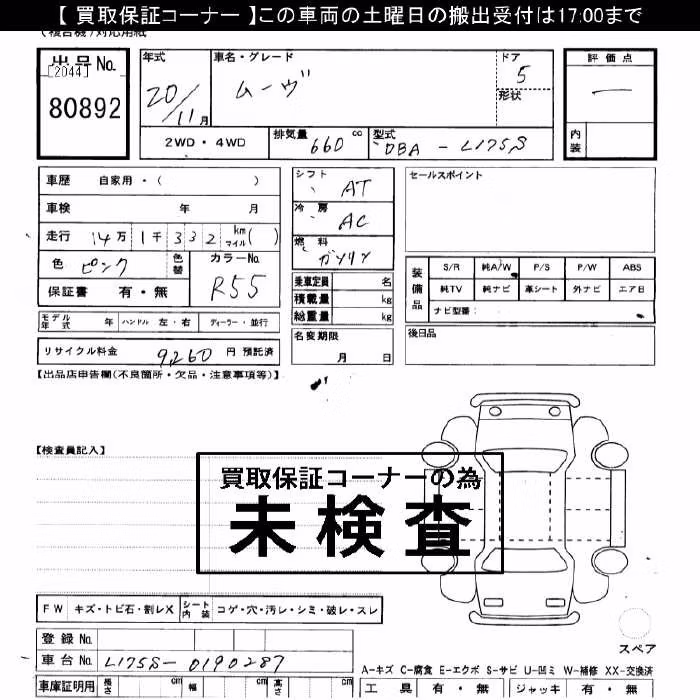 【 買取保証コーナー 】この車両の土曜日の搬出受付は17:00まで
(複合機)対応用紙
出品No. [2044] 80892
年式 20/11月
車名・グレード ムーヴ
ドア 5
形状
評価点 —
内装
2WD・4WD
排気量 660 cc
型式 DBA - L175S
車歴 自家用・( )
車検 年 月
走行 14万1千332 km マイル( )
色 ピンク 色替 カラーNo. R55
保証書 有・無
シフト AT
冷房 AC
燃料 ガソリン
乗車定員 名
積載量 kg
総重量 kg
セールスポイント
装備品 S/R 純A/W P/S P/W ABS
純TV 純ナビ 革シート 外ナビ エア日
ナビ型番:
モデル年式 年 ハンドル 左・右 ディーラー・並行
名変期限 月 日
後日品
リサイクル料金 9,260 円 預託済
【出品店申告欄(不良箇所・欠品・注意事項等)】
【検査員記入】
買取保証コーナーの為
未検査
FW キズ・トビ石・割レX シート内装 コゲ・穴・汚レ・シミ・破レ・スレ
登録No.
車台No. L175S-0190287
スペア
A-キズ C-腐食 E-エクボ S-サビ U-凹ミ W-補修 XX-交換済
車庫証明用 長さ cm 幅 cm 高さ cm
工具 有・無 ジャッキ 有・無